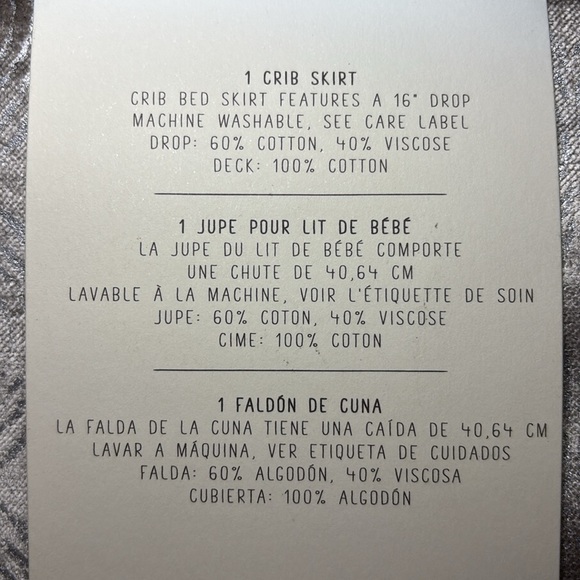 1 CRIB SKIRT
CRIB BED SKIRT FEATURES A 16" DROP
MACHINE WASHABLE, SEE CARE LABEL
DROP: 60% COTTON, 40% VISCOSE
DECK: 100% COTTON
1 JUPE POUR LIT DE BÉBÉ
LA JUPE DU LIT DE BÉBÉ COMPORTE
UNE CHUTE DE 40,64 CM
LAVABLE À LA MACHINE, VOIR L'ÉTIQUETTE DE SOIN
JUPE: 60% COTON, 40% VISCOSE
CIME: 100% COTON
1 FALDÓN DE CUNA
LA FALDA DE LA CUNA TIENE UNA CAÍDA DE 40,64 CM
LAVAR A MÁQUINA, VER ETIQUETA DE CUIDADOS
FALDA: 60% ALGODÓN, 40% VISCOSA
CUBIERTA: 100% ALGODÓN